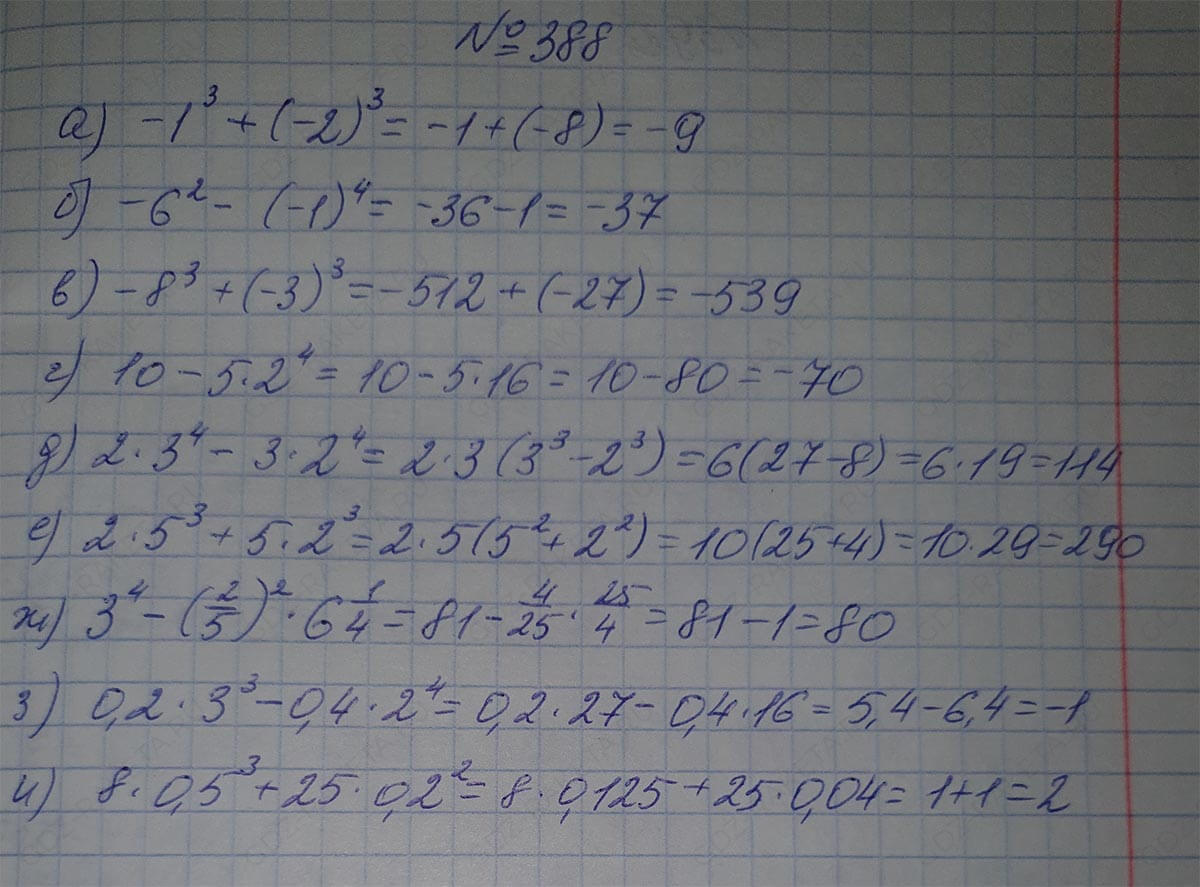 № 388
а) -1³ + (-2)³ = -1 + (-8) = -9
б) -6² - (-1)⁴ = -36 - 1 = -37
в) -8³ + (-3)³ = -512 + (-27) = -539
г) 10 - 5·2⁴ = 10 - 5·16 = 10 - 80 = -70
д) 2·3⁴ - 3·2⁴ = 2·3(3³ - 2³) = 6(27-8) = 6·19 = 114
е) 2·5³ + 5·2³ = 2·5(5² + 2²) = 10(25+4) = 10·29 = 290
ж) 3⁴ - (2/5)²·6 1/4 = 81 - 4/25 · 25/4 = 81 - 1 = 80
з) 0,2·3³ - 0,4·2⁴ = 0,2·27 - 0,4·16 = 5,4 - 6,4 = -1
и) 8·0,5³ + 25·0,2² = 8·0,125 + 25·0,04 = 1+1 = 2